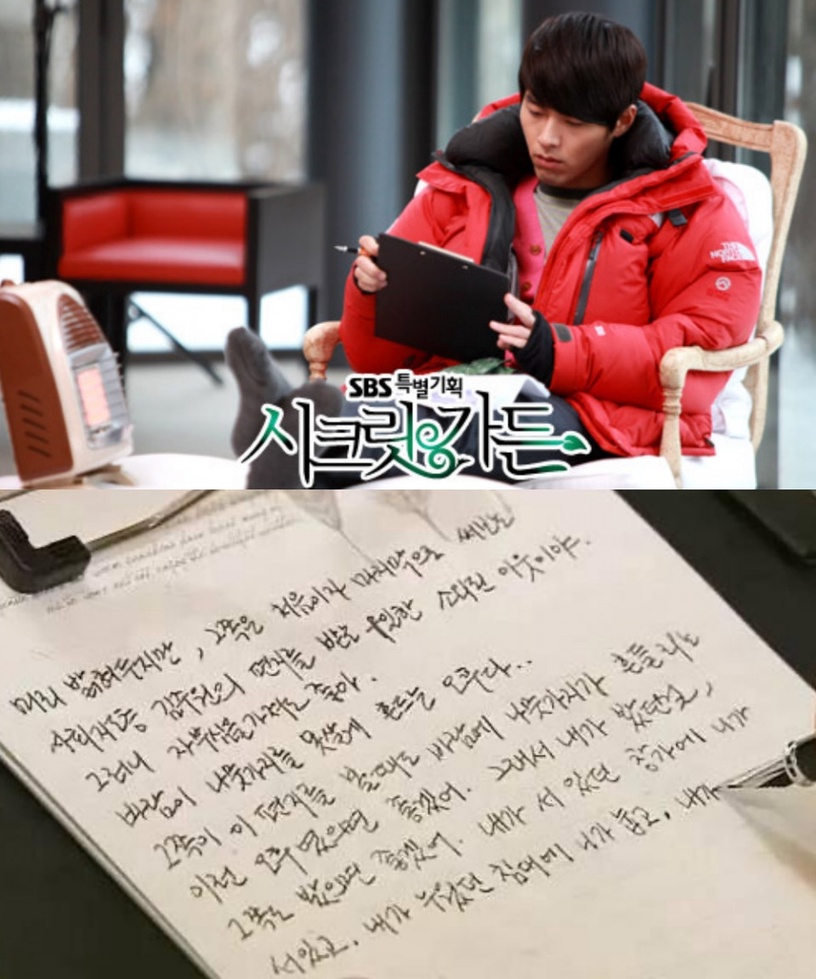 THE
NORTH
FACE
SBS 특별기획
시크릿가든
미리 밝혀두지만, 그쪽은 처음이자 마지막으로 써보는
사회지도층 김주원의 편지를 받은 유일한 소외된 이웃이야.
그러니 자부심을 가져도 좋아.
바람이 나뭇가지를 못살게 흔드는 오후다..
그쪽이 이 편지를 볼때도 바람에 나뭇가지가 흔들리는
이런 오후였으면 좋겠어. 그래서 내가 봤던걸,
그쪽도 봤으면 좋겠어. 내가 서 있던 창가에 니가
서있고, 내가 누웠던 침대에 니가 눕고, 내가